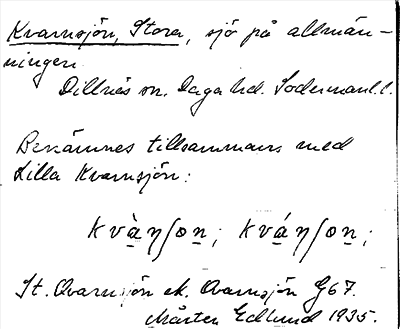 Kvarnsjön, Stora, sjö på allmän-
ningen
Dillnäs sn. Daga hd. Södermanl. l.
Benämnes tillsammans med
Lilla Kvarnsjön:
kvàηʃon; kváηʃon;
St. Qvarnsjön ek. Qvarnsjön G67.
Mårten Edlund 1935.